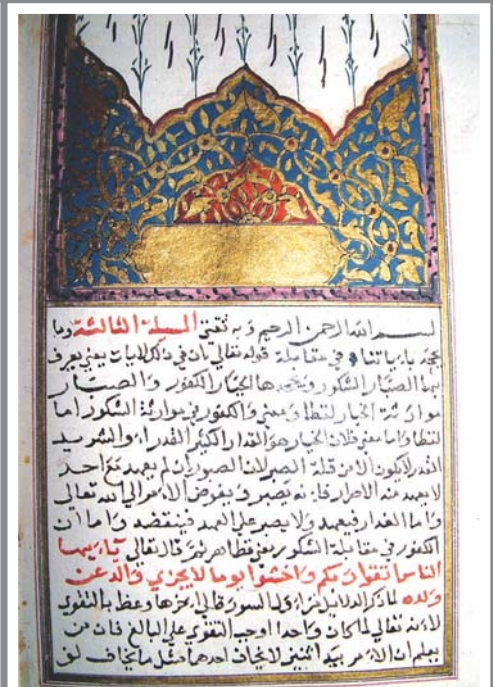 بسم الله الرحمن الرحيم وبه ثقتي المسيلة الثالثة وما
يجحد باءياتنا في مقابلة قوله تعالي ان في ذلك لايات يعني يعرف
بها الصبار الشكور ويجحدها الختار الكفور والصبار
موازنة الختار لفظا ومعني والكفور في موازنة الشكور اما
لفظا واما معني فلان الختار هو الغدار الكثير الغدر اء والشديد
الغدر لايكون الا من قلة الصبر لان الصبور ان لم يعهد مع احد
لا يعهد منه الاضرار فاءنه يصبر ويفوض الاءمر الي الله تعالي
واما الغدار فيعهد ولا يصبر علي العهد فينقضه واما ان
الكفور في مقابلة الشكور معني فظاهر ثم قال تعالي ياءيها
الناس اتقوا ربكم واخشوا يوما لا يجزي والد عن
ولده لما ذكر الدلايل من اول السورة الي اخرها وعظ بالتقوي
لاءنه تعالي لما كان واحدا اوجب التقوي علي البالغ فان من
يعلم ان الاءمر بيد اثنين لايخاف احدهما مثل ما يخاف لو